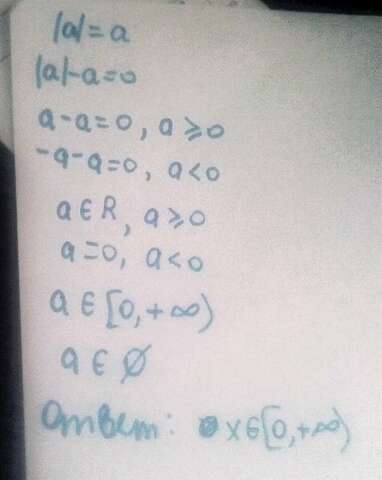 |a|=a
|a|-a=0
a-a=0, a⩾0
-a-a=0, a<0
a∈R, a⩾0
a=0, a<0
a∈[0,+∞)
a∈∅
Ответ: x∈[0,+∞)